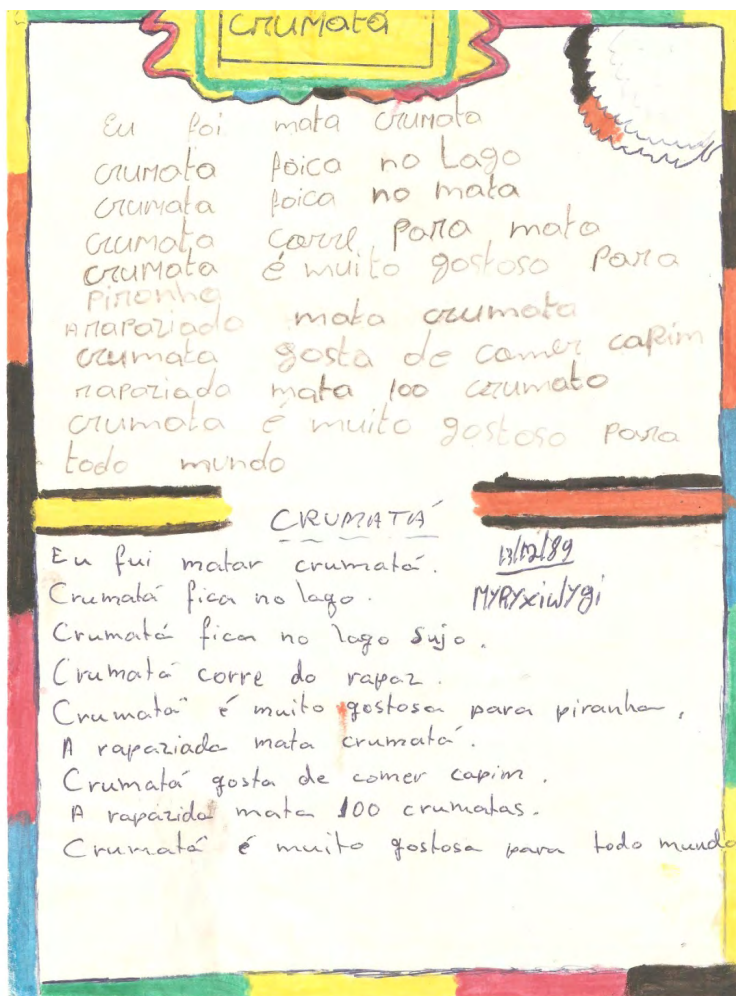 crumatá
Eu foi mata crumata
crumata foica no Lago
crumata foica no mata
crumata corre para mato
crumata é muito gostoso para
piranha
Arapaziado mata crumata
crumata gosta de comer capim
rapaziada mata 100 crumato
crumata é muito gostoso para
todo mundo
CRUMATÁ
Eu fui matar crumatá.
13/02/89
Crumatá fica no lago.
MYRYxiwYgi
Crumatá fica no lago sujo.
Crumatá corre do rapaz.
Crumatá é muito gostosa para piranha.
A rapaziada mata crumatá.
Crumatá gosta de comer capim.
A rapazida mata 100 crumatas.
Crumatá é muito gostosa para todo mundo